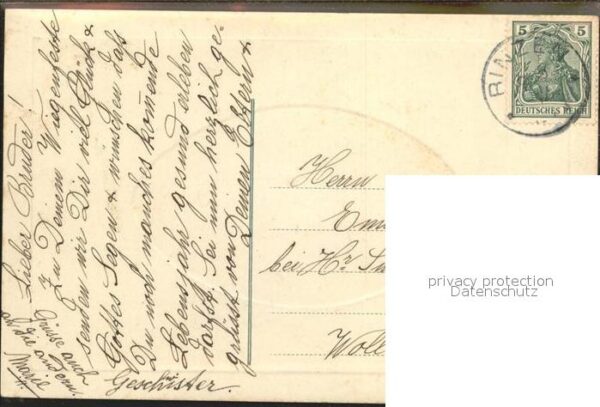 Lieber Bruder!
Zu Deinem Wiegenfeste
senden wir Dir viel Glück &
Gottes Segen & wünschen daß
Du noch manches kom̅ende
Lebensjahr gesund erleben
darfst. Sei nun herzlich ge-
grüßt von Deinen Eltern &
Geschister.
Grüsse auch
an die andern.
Marie
5 5
DEUTSCHES REICH
RIN
Herrn
Em
bei Hr.
Woll
privacy protection
Datenschutz